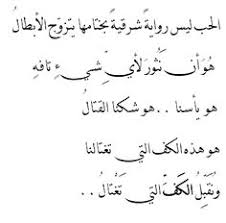 الحب ليس روايةً شرقيةً بختامها يتزوّج الأبطالُ
هُوَ أن نَثُورَ لأي ِّ شيءٍ تافهٍ
هو يأسنا . . هو شكنا القتالُ
هو هذه الكف التي تغتالنا
ونُقَبِّلُ الكَفَّ التي تَغْتالُ . .